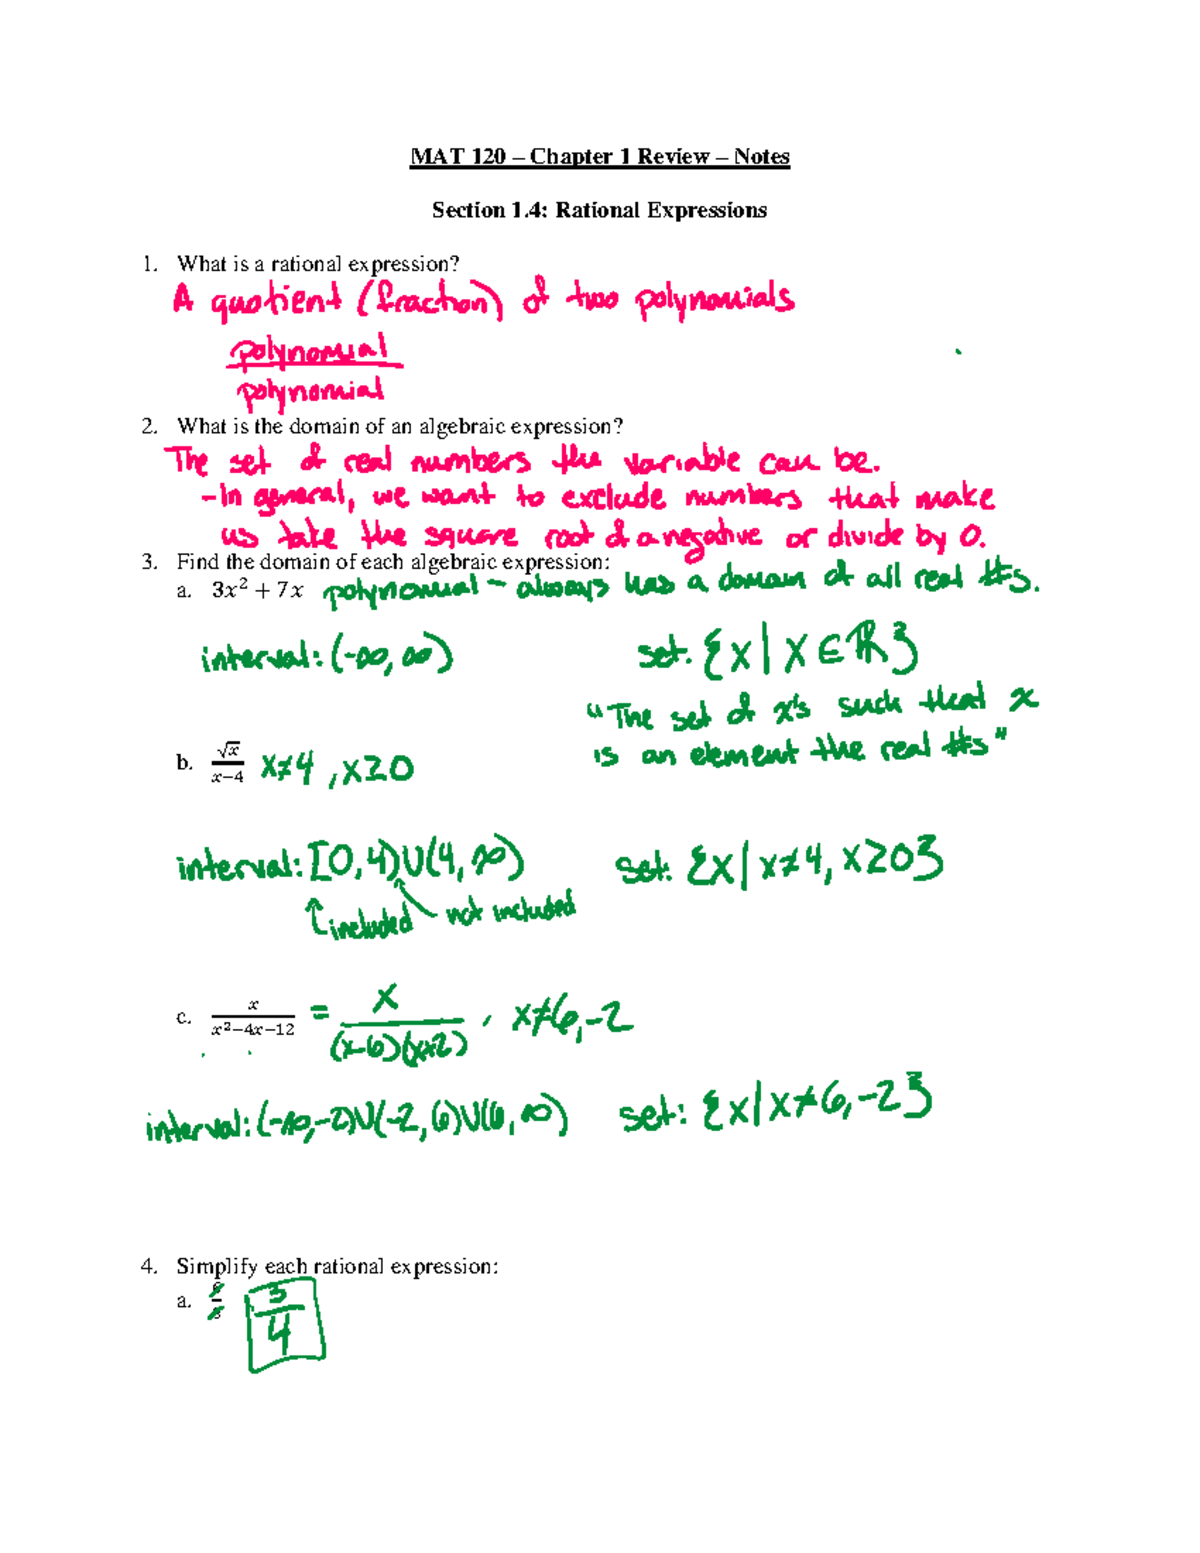 MAT 120 – Chapter 1 Review – Notes
Section 1.4: Rational Expressions
1. What is a rational expression?
A quotient (fraction) of two polynomials
polynomial
polynomial
2. What is the domain of an algebraic expression?
The set of real numbers the variable can be.
-In general, we want to exclude numbers that make
us take the square root of a negative or divide by 0.
3. Find the domain of each algebraic expression:
a. 3x² + 7x polynomial - always has a domain of all real #s.
interval: (-∞, ∞) set: {x | x ∈ ℝ}
"The set of x's such that x
is an element the real #s"
b. √x / x−4 x≠4, x≥0
interval: [0,4)∪(4,∞) set: {x | x≠4, x≥0}
included not included
c. x / x²−4x−12 = x / (x-6)(x+2), x≠6,-2
interval: (-∞,-2)∪(-2,6)∪(6,∞) set: {x | x≠6,-2}
4. Simplify each rational expression:
a. 3/4